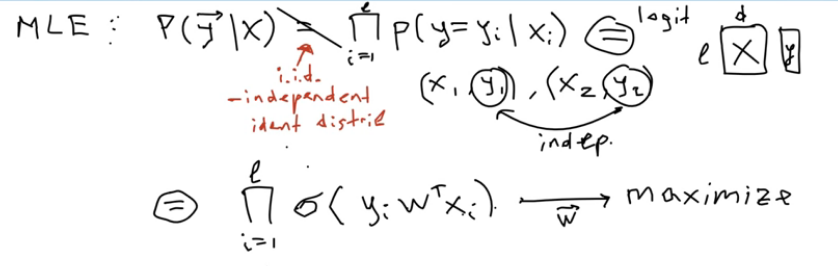 MLE : P(y⃗ |X) = ∏ᵢ₌₁ˡ p(y=yᵢ | xᵢ) = logit l X d y
i.i.d.
-independent
ident distrib
(x₁, y₁), (x₂, y₂)
indep.
= ∏ᵢ₌₁ˡ σ( yᵢ wᵀxᵢ). → w⃗ maximize